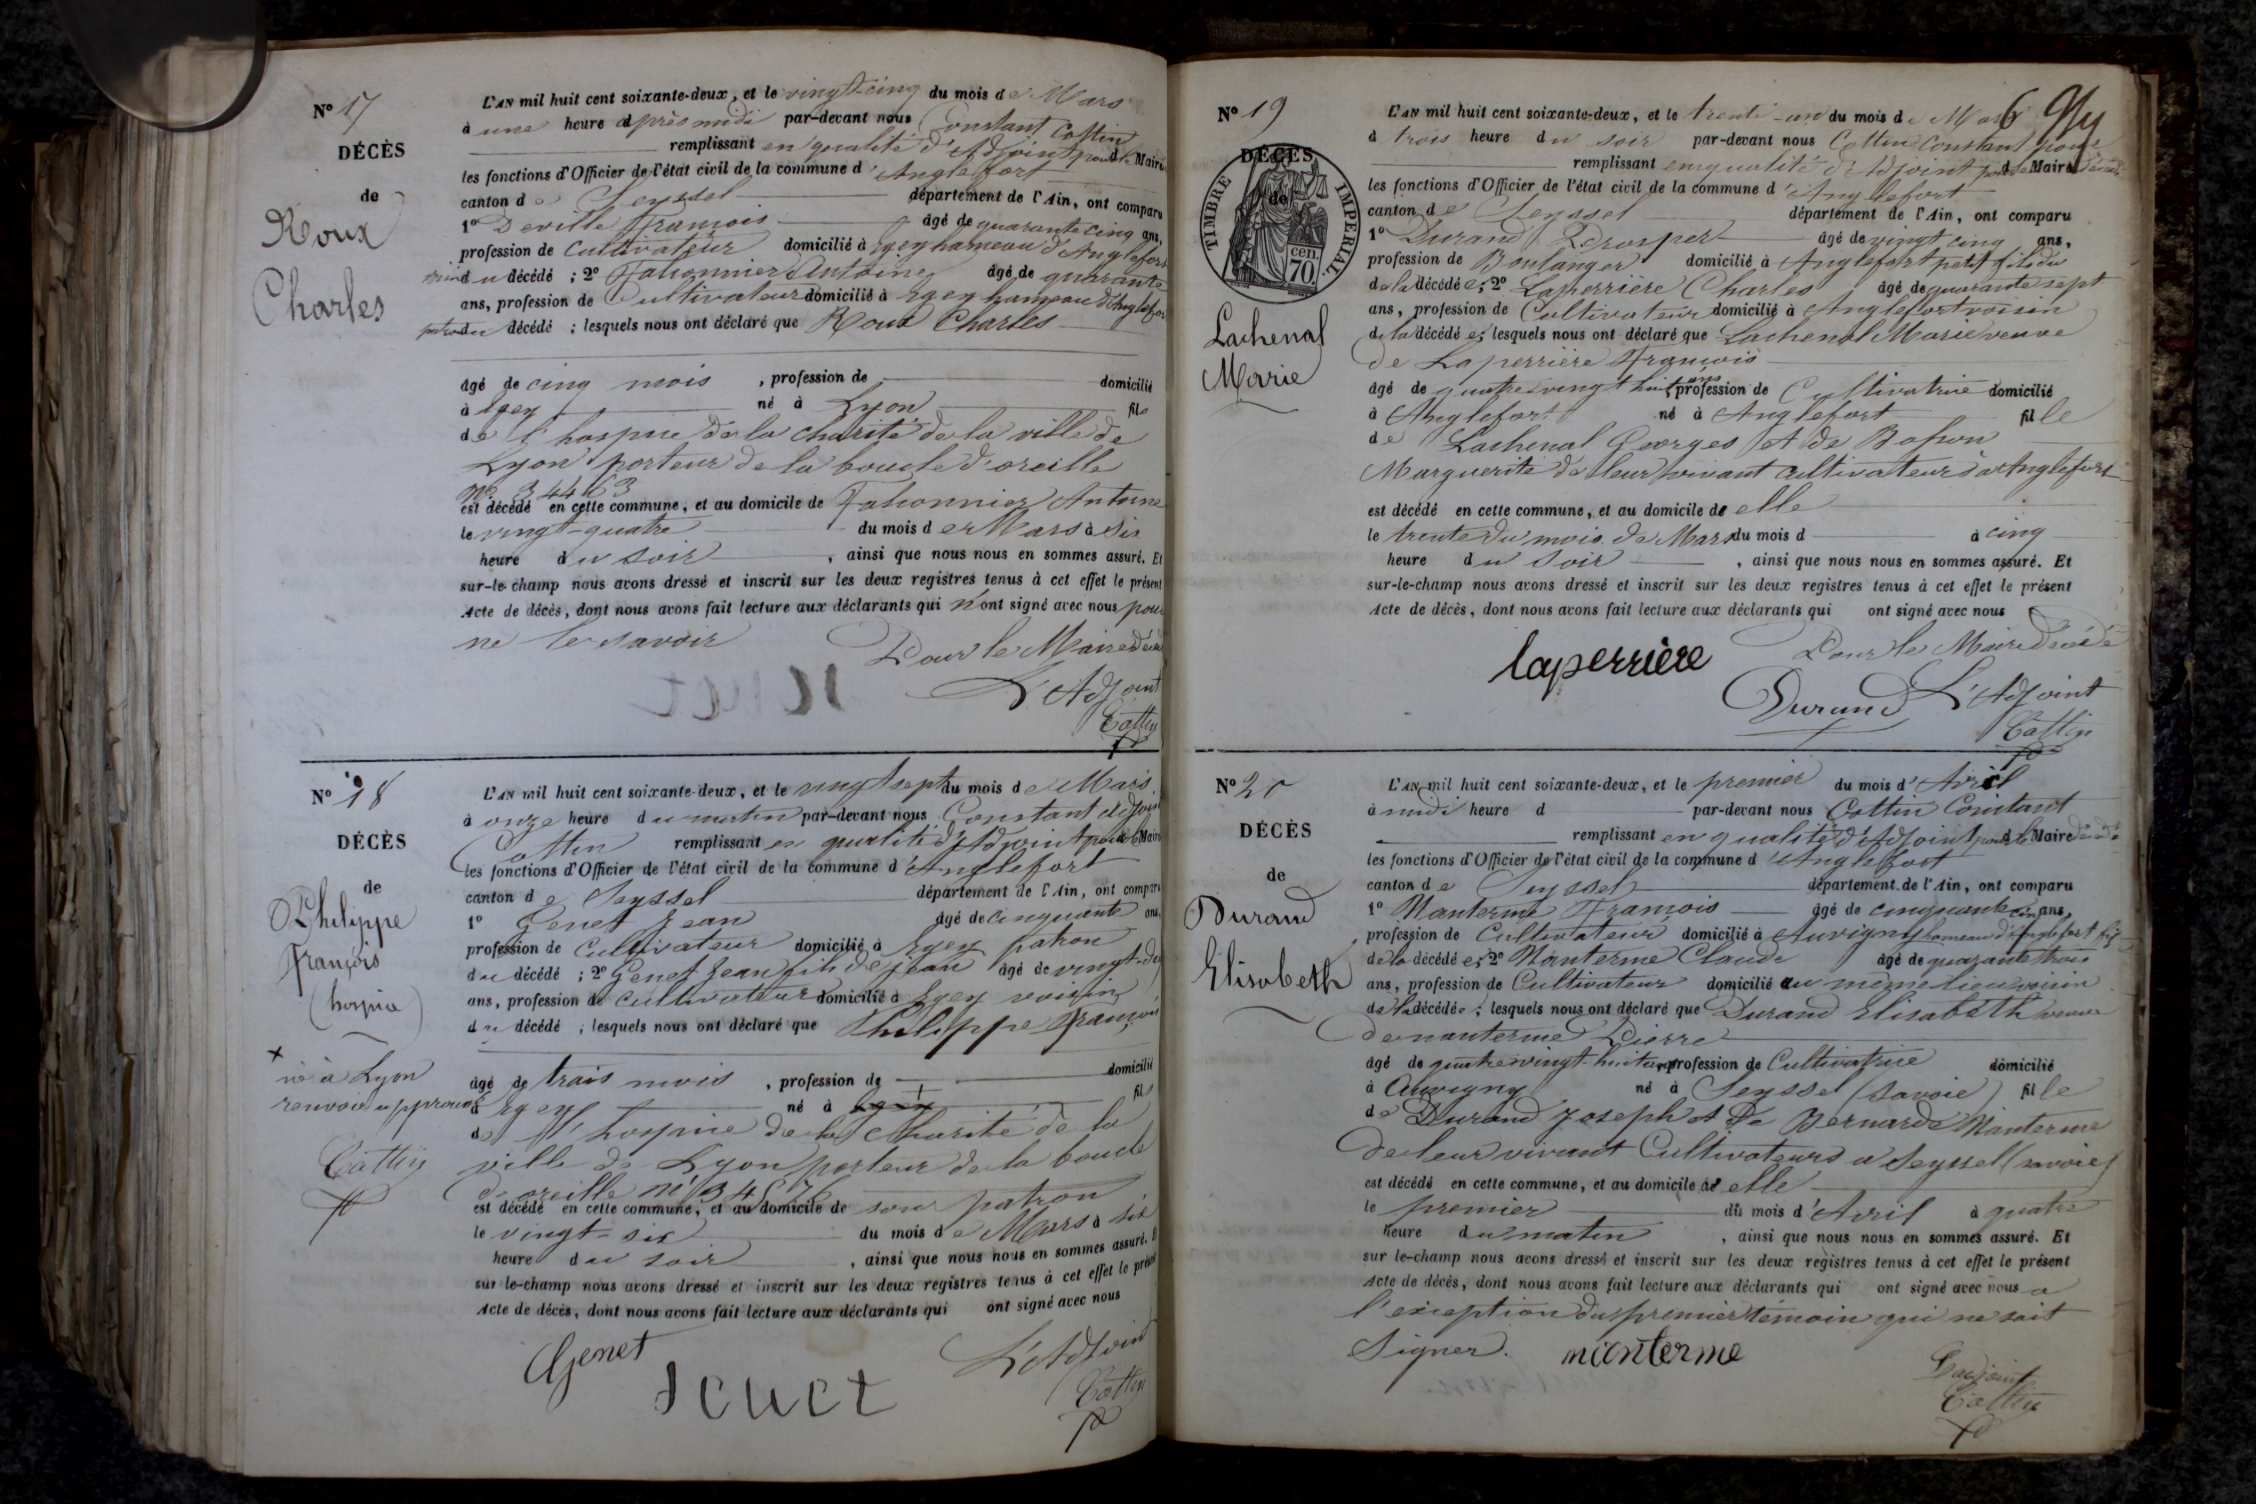 N° 17
DÉCÈS
de
Roux
Charles
L'AN mil huit cent soixante-deux, et le vingt cinq du mois de Mars
à une heure après midi par-devant nous Constant Cottin
remplissant en qualité d'Adjoint pour le Maire
les fonctions d'Officier de l'état civil de la commune d'Anglefort
canton de Seyssel département de l'Ain, ont comparu
1° Deville François âgé de quarante cinq ans,
profession de Cultivateur domicilié à Igey hameau d'Anglefort
voisin du décédé ; 2° Antoine âgé de quarante
ans, profession de Cultivateur domicilié à Igey hameau d'Anglefort
patron du décédé ; lesquels nous ont déclaré que Roux Charles
âgé de cinq mois , profession de domicilié
à Igey né à Lyon fils
de l'hospice de la charité de la ville de
Lyon porteur de la boucle d'oreille
N° 34463
est décédé en cette commune, et au domicile de Antoine
le vingt-quatre du mois de Mars à six
heure du soir , ainsi que nous nous en sommes assuré. Et
sur-le-champ nous avons dressé et inscrit sur les deux registres tenus à cet effet le présent
Acte de décès, dont nous avons fait lecture aux déclarants qui n'ont signé avec nous pour
ne le savoir
Pour le Maire décédé
L'Adjoint
Cottin
N° 18
DÉCÈS
de
Philippe
François
(hospice)
+
né à Lyon
renvoi approuvé
Cottin
L'AN mil huit cent soixante-deux, et le vingt sept du mois de Mars
à onze heure du matin par-devant nous Constant adjoint
Cottin remplissant en qualité d'Adjoint pour le Maire
les fonctions d'Officier de l'état civil de la commune d'Anglefort
canton de Seyssel département de l'Ain, ont comparu
1° Genet Jean âgé de cinquante ans,
profession de Cultivateur domicilié à Igey patron
du décédé ; 2° Genet Jean fils de Jean âgé de vingt-deux
ans, profession de Cultivateur domicilié à Igey voisin
du décédé ; lesquels nous ont déclaré que Philippe François
âgé de trais mois , profession de domicilié
à Igey né à + fils
de l'hospice de la Charité de la
ville de Lyon porteur de la boucle
d'oreille N° 34576
est décédé en cette commune, et au domicile de son patron
le vingt-six du mois de Mars à six
heure du soir , ainsi que nous nous en sommes assuré. Et
sur le-champ nous avons dressé et inscrit sur les deux registres tenus à cet effet le présent
Acte de décès, dont nous avons fait lecture aux déclarants qui ont signé avec nous
Genet
Jenet
L'Adjoint
Cottin
6
N° 19
DÉCÈS
de
TIMBRE IMPERIAL.
70 cen.
Lachenal
Marie
L'AN mil huit cent soixante-deux, et le trente-un du mois de Mars
à trois heure du soir par-devant nous Cottin Constant
remplissant en qualité d'Adjoint pour le Maire décédé
les fonctions d'Officier de l'état civil de la commune d'Anglefort
canton de Seyssel département de l'Ain, ont comparu
1° Durand Prosper âgé de vingt cinq ans,
profession de Boulanger domicilié à Anglefort petit fils du
de la décédée ; 2° Laperrière Charles âgé de quarante sept
ans, profession de Cultivateur domicilié à Anglefort voisin
de la décédée ; lesquels nous ont déclaré que Lachenal Marie veuve
de Laperrière François
âgé de quatre vingt huit ans, profession de Cultivatrice domicilié
à Anglefort né à Anglefort fille
de Lachenal Georges et de
Marguerite de leur vivant cultivateurs à Anglefort
est décédé en cette commune, et au domicile de elle
le trente du mois de Mars du mois d à cinq
heure du soir , ainsi que nous nous en sommes assuré. Et
sur-le-champ nous avons dressé et inscrit sur les deux registres tenus à cet effet le présent
Acte de décès, dont nous avons fait lecture aux déclarants qui ont signé avec nous
Pour le Maire décédé
laperrière
Durand L'Adjoint
Cottin
N° 20
DÉCÈS
de
Durand
Elisabeth
L'AN mil huit cent soixante-deux, et le premier du mois d'Avril
à midi heure d par-devant nous Cottin Constant
remplissant en qualité d'Adjoint pour le Maire décédé
les fonctions d'Officier de l'état civil de la commune d'Anglefort
canton de Seyssel département de l'Ain, ont comparu
1° Nanterme François âgé de cinquante cinq ans,
profession de Cultivateur domicilié à Auvigny hameau d'Anglefort fils
de la décédée ; 2° Nanterme Claude âgé de quarante trois
ans, profession de Cultivateur domicilié au même lieu voisin
de la décédée ; lesquels nous ont déclaré que Durand Elisabeth veuve
de nanterme Pierre
âgé de quatre vingt-huit ans, profession de Cultivatrice domicilié
à Auvigny né à Seyssel (Savoie) fille
de Durand Joseph et de Bernarde Nanterme
de leur vivant Cultivateurs à Seyssel (savoie)
est décédé en cette commune, et au domicile de elle
le premier du mois d'Avril à quatre
heure du matin , ainsi que nous nous en sommes assuré. Et
sur le-champ nous avons dressé et inscrit sur les deux registres tenus à cet effet le présent
Acte de décès, dont nous avons fait lecture aux déclarants qui ont signé avec nous a
l'exception du premier témoin qui ne sait
Signer. nanterme
L'adjoint
Cottin